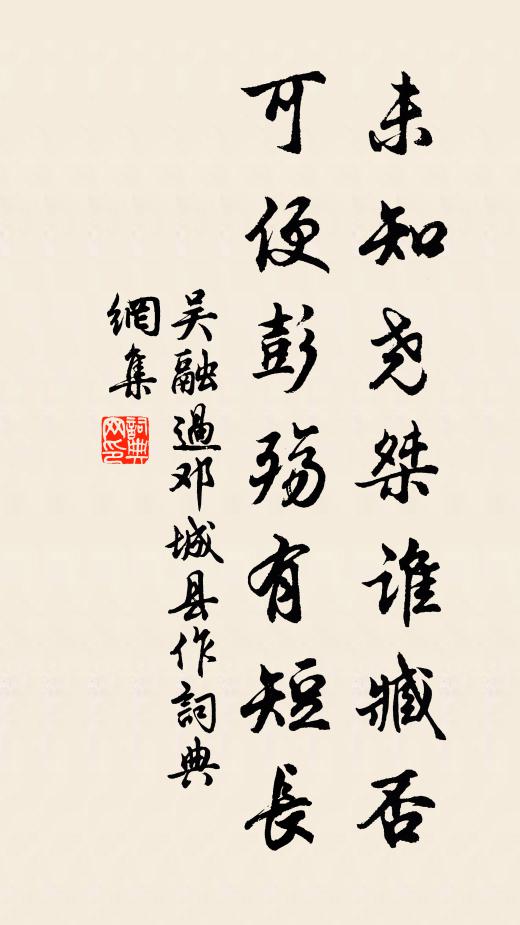 未知尧桀谁臧否
可便彭殇有短長
吴融過邓城县作詞典
網集
詞典
网印